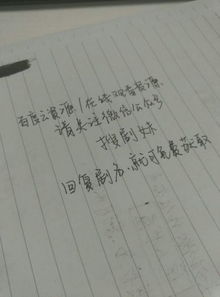 百度云资源/在线观看资源
请关注微信公众号
搜剧妹
回复剧名,就可免费获取